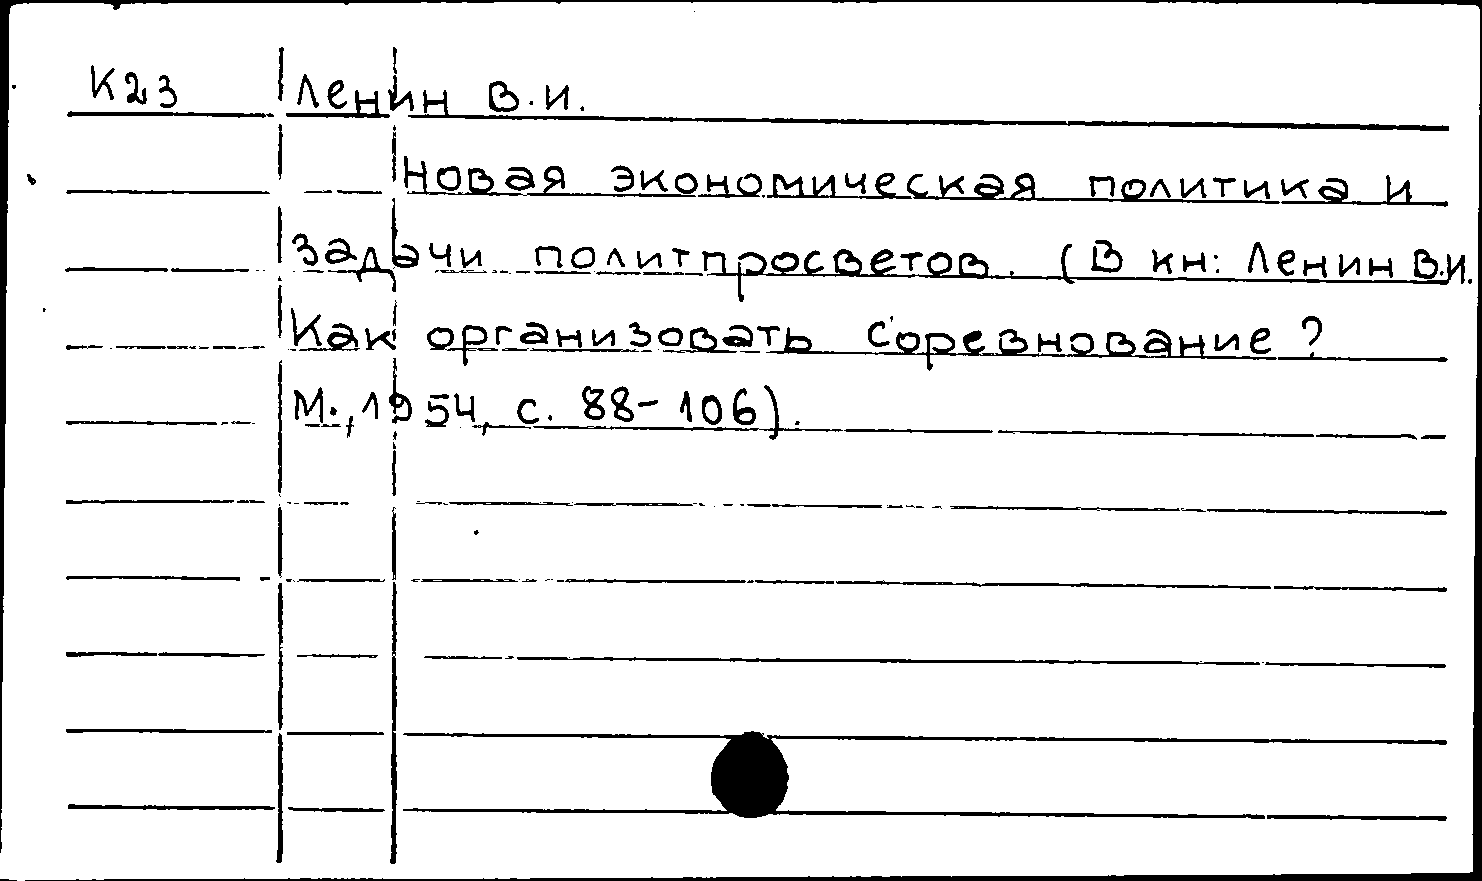 К23 Ленин В.И.
Новая экономическая политика и
задачи политпросветов. (В кн: Ленин В.И.
Как организовать соревнование?
М., 1954, с. 88-106).